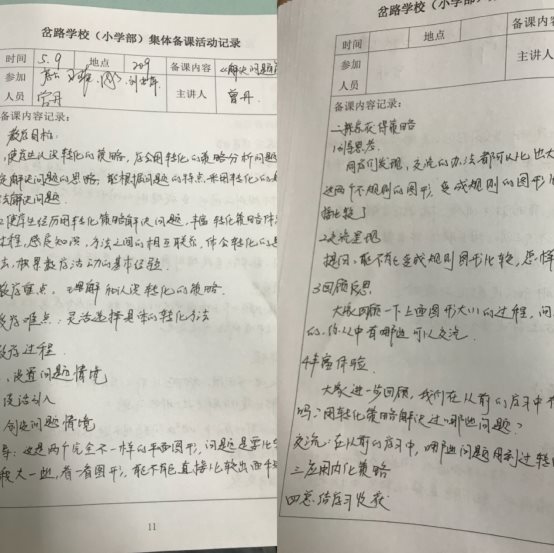 岔路学校（小学部）集体备课活动记录
时间 5.9 地点 209 备课内容 《解决问题
参加
人员
主讲人 曾丹
备课内容记录：
教学目标：
1.使学生认识转化的策略，应会用转化的策略分析问题
解决问题的思路，能根据问题的特点采用转化的
解决问题.
2.使学生经历用转化策略解决问题，丰富转化策略体
过程，感受知识，方法之间的相互联系，体会转化的
积累数学活动的基本经验.
教学重点：理解和认识转化的策略.
教学难点：灵活选择具体的转化方法
教学过程
一、设置问题情境
谈话引入
创设问题情境
导：这是两个完全不一样的平面图形，问题是要比
较大一些，看一看图形，能不能直接比较出两
11
岔路学校（小学部）
时间 地点
参加
人员
主讲
备课内容记录：
二.探究获得策略
1.引导思考.
同学们发现，交流的办法都可以比出大
这两个不规则的图形，变成规则的图形
比较了
2.交流呈现
提问：能不能变成规则图形比较，怎样
3.回顾反思
大家回顾一下上面图形大小的过程，问
的，你从中有哪些可以交流.
4.丰富体验.
大家进一步回顾，我们在以前的学习中
吗？用转化策略解决过哪些问题？
交流：在以前的学习中，哪些问题用到过转
三.应用内化策略
四.总结学习收获